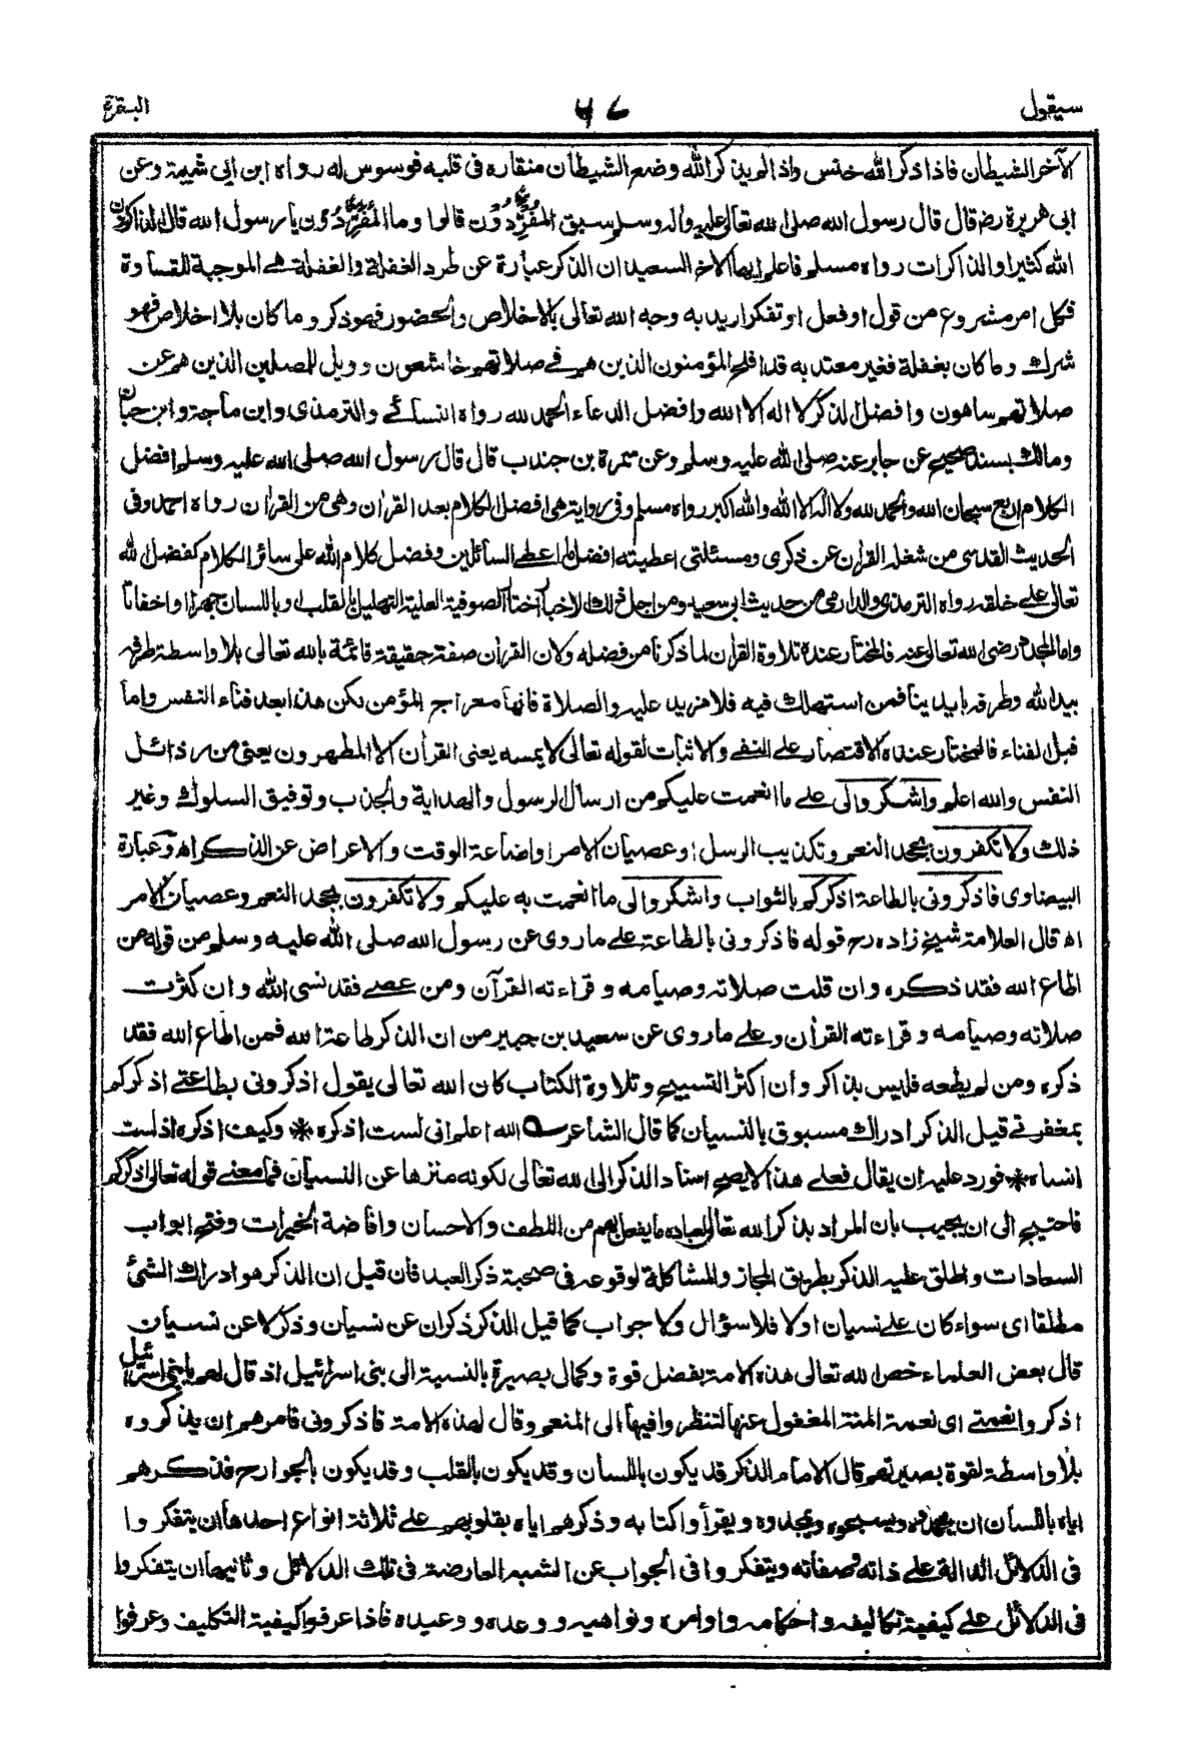 سيقول ٤٦ البقرة
الآخر الشيطان فاذا ذكر الله خنس واذا لم يذكر الله وضع الشيطان منقاره فى قلبه فوسوس له رواه ابن ابى شيبة وعن
ابى هريرة رض قال قال رسول الله صلى الله تعالى عليه واله وسلم سبق المفردون قالوا وما المفردون يا رسول الله قال الذاكرون
الله كثيرا والذاكرات رواه مسلم فاعلم ايها الاخ السعيد ان الذكر عبارة عن طرد الغفلة والغفلة هى الموجبة للقساوة
فكل امر مشروع من قول او فعل او تفكر اريد به وجه الله تعالى بالاخلاص والحضور فهو ذكر وما كان بلا اخلاص فهو
شرك وما كان بغفلة فغير معتد به قد افلح المؤمنون الذين هم فى صلاتهم خاشعون وويل للمصلين الذين هم عن
صلاتهم ساهون وافضل الذكر لا اله الا الله وافضل الدعاء الحمد لله رواه النسائى والترمذى وابن ماجة وابن حبان
ومالك بسند صحيح عن جابر عنه صلى الله عليه وسلم وعن سمرة بن جندب قال قال رسول الله صلى الله عليه وسلم افضل
الكلام اربع سبحان الله والحمد لله ولا اله الا الله والله اكبر رواه مسلم وفى رواية هى افضل الكلام بعد القرآن وهى من القرآن رواه احمد وفى
الحديث القدسى من شغله القرآن عن ذكرى ومسئلتى اعطيته افضل ما اعطى السائلين وفضل كلام الله على سائر الكلام كفضل الله
تعالى على خلقه رواه الترمذى والدارمى من حديث ابى سعيد ومن اجل ذلك الاخبار اختار الصوفية العلية التهليل بالقلب وباللسان جهرا واخفاتا
واما المجدد رضى الله تعالى عنه فالمختار عنده تلاوة القرآن لما ذكرنا من فضله ولان القرآن صفة حقيقة قائمة بالله تعالى بلا واسطة طرفه
بيد الله وطرفه بايدينا فمن استهلك فيه فلا مزيد عليه والصلاة فانها معراج المؤمن يكن هذا بعد فناء النفس واما
قبل الفناء فالمختار عنده الاقتصار على النفى والاثبات لقوله تعالى لا يمسه يعنى القرآن الا المطهرون يعنى من رذائل
النفس والله اعلم واشكروالى على ما انعمت عليكم من ارسال الرسول والهداية والجذب وتوفيق السلوك وغير
ذلك ولا تكفرون بجحد النعم وتكذيب الرسل اوعصيان الامر او اضاعة الوقت والاعراض عن الذكر اه وعبارة
البيضاوى فاذكرونى بالطاعة اذكركم بالثواب واشكروا لى ما انعمت به عليكم ولا تكفرون بجحد النعم وعصيان الامر
اه قال العلامة شيخ زاده رح قوله فاذكرونى بالطاعة على ما روى عن رسول الله صلى الله عليه وسلم من قوله من
اطاع الله فقد ذكره وان قلت صلاته وصيامه وقراءته القرآن ومن عصى فقد نسى الله وان كثرت
صلاته وصيامه وقراءته القرآن وعلى ما روى عن سعيد بن جبير من ان الذكر طاعة الله فمن اطاع الله فقد
ذكره ومن لم يطعه فليس بذاكر وان اكثر التسبيح وتلاوة الكتاب كان الله تعالى يقول اذكرونى بطاعتى اذكركم
بمغفرتى قيل الذكر ادراك مسبوق بالنسيان كما قال الشاعر الله اعلم انى لست اذكره * وكيف اذكره اذ لست
انساه * فورد عليه ان يقال فعلى هذا لا يصح اسناد الذكر الى الله تعالى لكونه منزها عن النسيان فما معنى قوله تعالى اذكركم
فاحتيج الى ان يجيب بان المراد بذكر الله تعالى لعباده ما يفعل بهم من اللطف والاحسان وافاضة الخيرات وفتح ابواب
السعادات واطلق عليه الذكر بطريق المجاز والمشاكلة لوقوعه فى صحبة ذكر العبد فان قيل ان الذكر هو ادراك الشئ
مطلقا اى سواء كان على نسيان اولا فلا سؤال ولا جواب كما قيل الذكر ذكران عن نسيان وذكر لا عن نسيان
قال بعض العلماء خص الله تعالى هذه الامة بفضل قوة وكمال بصيرة بالنسبة الى بنى اسرائيل اذ قال لهم يا بنى اسرائيل
اذكروا نعمتى اى نعمة المنة المغفول عنها لتنظروا فيها الى المنعم وقال لهذه الامة فاذكرونى فامرهم ان يذكروه
بلا واسطة لقوة بصيرتهم قال الامام الذكر قد يكون باللسان وقد يكون بالقلب وقد يكون بالجوارح فذكرهم
اياه باللسان ان يحمدوه ويسبحوه ويمجدوه ويقرأوا كتابه وذكرهم اياه بقلوبهم على ثلاثة انواع احدها ان يتفكروا
فى الدلائل الدالة على ذاته وصفاته ويتفكروا فى الجواب عن الشبه العارضة فى تلك الدلائل وثانيها ان يتفكروا
فى الدلائل على كيفية تكاليفه واحكامه واوامره ونواهيه ووعده ووعيده فاذا عرفوا كيفية التكليف وعرفوا